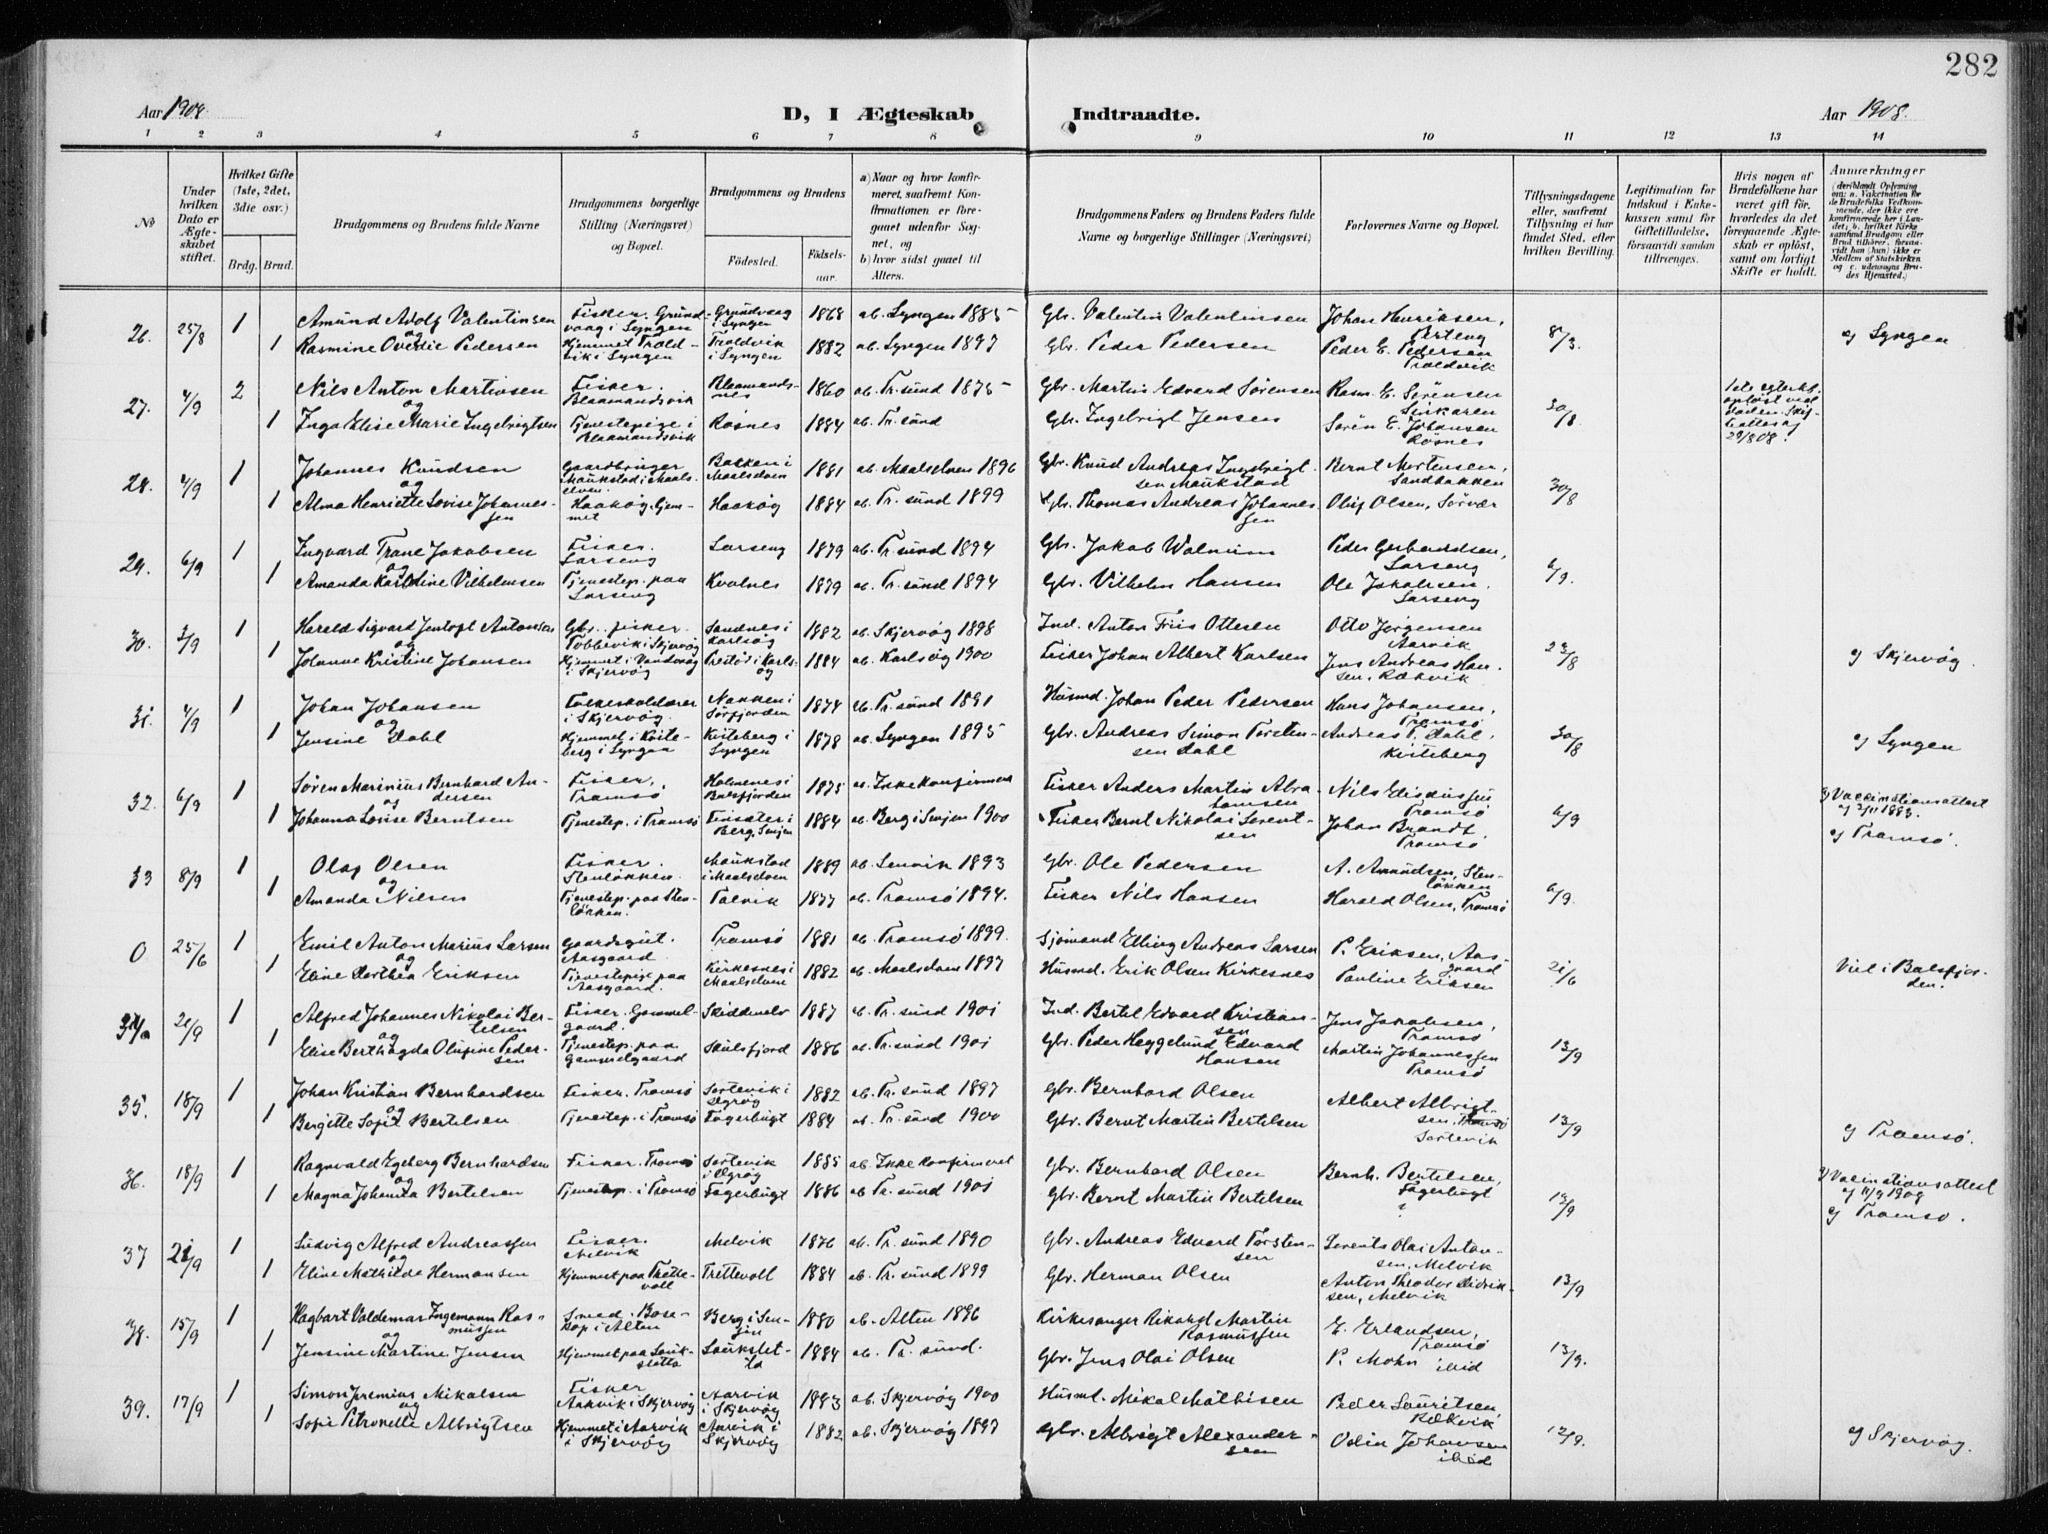 282
Aar 1908 D, I Ægteskab Indtraadte. Aar 1908.
1 2 3 4 5 6 7 8 9 10 11 12 13 14
No
Under hvilken Dato er Ægteskabet stiftet.
Hvilket Gifte (1ste, 2det, 3die osv.)
Brdg. Brud.
Brudgommens og Brudens fulde Navne
Brudgommens borgerlige Stilling (Næringsvei) og Bopæl.
Brudgommens og Brudens
Fødested. Fødselsaar.
a) Naar og hvor konfirmeret, saafremt Konfirmationen er foregaaet udenfor Sognet, og
b) hvor sidst gaaet til Alters.
Brudgommens Faders og Brudens Faders fulde Navne og borgerlige Stillinger (Næringsvei)
Forlovernes Navne og Bopæl.
Tillysningsdagene eller, saafremt Tillysning ei har fundet Sted, efter hvilken Bevilling.
Legitimation for Indskud i Enkekassen samt for Giftetilladelse, forsaavidt saadan tiltrænges.
Hvis nogen af Brudefolkene har været gift før, hvorledes da det foregaaende Ægteskab er opløst, samt om lovligt Skifte er holdt.
Anmærkninger
(deriblandt Oplysning om: a. Vakcination for de Brudefolks Vedkommende, der ikke ere konfirmerede her i Landet; b. hvilket Kirkesamfund Brudgom eller Brud tilhører, forsaavidt han (hun) ikke er Medlem af Statskirken og c. udensogns Brudes Hjemsted.)
26. 25/8 1 Amund Adolf Valentinsen Fisker. Grundvaag i Lyngen Grundvaag i Lyngen 1868 ab. Lyngen 1885 Gbr. Valentin Valentinsen Johan Henriksen, 8/3.
og
1 Rasmine Ovedie Pedersen Hjemmet Troldvik i Lyngen Troldvik i Lyngen 1882 ab. Lyngen 1897 Gbr. Peder Pedersen Peder E. Pedersen Troldvik c) Lyngen
27. 4/9 2 Nils Anton Martinsen Fisker. Blaamandsvik Blaamandsnes 1860 ab. Tr.sund 1875 Gbr. Martin Edvard Sørensen Rasm. E. Sørensen 30/8
og
1 Inga Elise Marie Ingebrigtsen Tjenestepige i Blaamandsvik Røsnes 1884 ab. Tr.sund Gbr. Ingebrigt Jensen Sørin E. Johansen Røsnes
28. 4/9 1 Johannes Knudsen Gaardbruger Maukstad i Maalselven. Bakken i Maalselven 1881 ab. Maalselven 1896 Gbr. Knud Andreas Ingebrigtsen Maukstad Bernt Mortensen, Sandbakken 30/8
og
1 Alma Henriette Lovise Johannessen Haakøy. Hjemmet Haakøy 1884 ab. Tr.sund 1899 Gbr. Thomas Andreas Johannessen Oluf Olsen, Sørvær
29. 6/9 1 Ingvard Trane Jakobsen Fisker. Larseng Larseng 1879 ab. Tr.sund 1894 Gbr. Jakob Walnum Peder Gerhardsen, Larseng 6/9.
og
1 Amanda Karoline Vilhelmsen Tjenestep. paa Larseng Kvalnes 1879 ab. Tr.sund 1894 Gbr. Vilhelm Hansen Ole Jakobsen. Larseng
30. 3/9 1 Harald Sigvard Jentoft Antonsen Gbr. fisker. Tobbevik i Skjervøy Sandnes i Karlsøy 1882 ab. Skjervøy 1898 Ind. Anton Friis Ottesen Otto Jørgensen Aarvik 23/8
og
1 Johanne Kristine Johansen Hjemmet i Vandvaag i Skjervøy Prestø i Karlsøy 1884 ab. Karlsøy 1900 Fisker Johan Albert Karlsen Jens Andreas Hansen, Rækvik c) Skjervøy.
31. 4/9 1 Johan Johansen Folkeskolelærer i Skjervøy. Nakken i Sørfjorden 1874 ab. Tr.sund 1891 Husmd. Johan Peder Pedersen Hans Johansen, Tromsø 30/8
og
1 Jensine Dahl Hjemmet i Kviteberg i Lyngen Kviteberg i Lyngen 1878 ab. Lyngen 1895 Gbr. Andreas Simon Torstensen Dahl Andreas P. Dahl, Kviteberg c) Lyngen
32. 6/9 1 Søren Marinius Bernhard Andersen Fisker, Tromsø Holmenes i Balsfjorden 1875 a. Ikke konfirmeret Fisker Anders Martin Abrahamsen Nils Eliseussen Tromsø 6/9 a) Vaccinationsattest af 3/11 1883.
og
1 Johanna Lovise Berntsen Tjenestep. i Tromsø Finsæter i Berg, Senjen 1884 ab. Berg i Senjen 1900 Fisker Bernt Nikolai Lorentsen Johan Brandt. Tromsø c) Tromsø.
33 8/9 1 Olaf Olsen Fisker. Stenløkken. Maukstad i Maalselven 1889 ab. Lenvik 1893 Gbr. Ole Pedersen A. Amundsen, Stenløkken 6/9.
og
1 Amanda Nilsen Tjenestep. paa Stenløkken. Talvik 1877 ab. Tromsø 1894. Fisker Nils Hansen Harald Olsen, Tromsø
0 25/6 1 Emil Anton Marius Larsen Gaardsgut. Aasgaard. Tromsø 1881 ab. Tromsø 1899. Sjømand Elling Andreas Larsen P. Eriksen, Aasgaard 21/6
og
1 Eline Dorthea Eriksen Tjenestepige paa Aasgaard. Kirkesnes i Maalselven 1882 ab. Maalselven 1897 Husmd. Erik Olsen Kirkesnes Pauline Eriksen Viel i Balsfjorden.
34 20/9 1 Alfred Johannes Nikolai Bertelsen Fisker. Gammelgaard. Skiddenelv 1887 ab. Tr.sund 1901 Ind. Bertel Edvard Kristiansen Jens Jakobsen, Tromsø 13/9
og
1 Elise Berthagda Olufine Pedersen Tjenestep. paa Gammelgaard Skulsfjord 1886 ab. Tr.sund 1901 Gbr. Peder Heggelund Edvard Hansen Martin Johannessen Tromsø
35. 18/9 1 Johan Kristian Bernhardsen Fisker. Tromsø Sortevik i 1882 ab. Tr.sund 1897 Gbr. Bernhard Olsen Albert Albrigtsen, Sortevik 13/9
og
1 Bergitte Sofie Bertelsen Tjenestep. i Tromsø Fagerbugt 1884 ab. Tr.sund 1900 Gbr. Bernt Martin Bertelsen c) Tromsø.
36. 18/9 1 Ragnvald Egeberg Bernhardsen Fisker. Tromsø Sortevik 1885 ab. Ikke konfirmeret Gbr. Bernhard Olsen Bernh. Bertelsen, Fagerbugt 13/9 a) Vaccinationsattest af 11/9 1908
og
1 Magna Johanna Bertelsen Tjenestep. i Tromsø Fagerbugt 1886 ab. Tr.sund 1901 Gbr. Bernt Martin Bertelsen c) Tromsø.
37 21/9 1 Ludvig Alfred Andreassen Fisker. Melvik Melvik 1876 ab. Tr.sund 1890 Gbr. Andreas Edvard Torstensen Lorents Olai Antonsen, Melvik 13/9
og
1 Eline Mathilde Hermansen Hjemmet paa Trettevoll Trettevoll 1884 ab. Tr.sund 1899 Gbr. Herman Olsen Anton Theodor Didriksen, Melvik
38. 15/9 1 Hagbart Valdemar Ingemann Rasmussen Smed. Bosekop i Alten Berg i Senjen 1880 ab. Alten 1896 Kirkesanger Rikard Martin Rasmussen E. Erlandsen, Tromsø 13/9.
og
1 Jensine Martine Jensen Hjemmet paa Laukslætta Laukslætta 1884 ab. Tr.sund. Gbr. Jens Olai Olsen P. Mohn ibid
39. 17/9 1 Simon Jremius Mikalsen Fisker Aarvik i Skjervøy Aarvik i Skjervøy 1883 ab. Skjervøy 1900 Husmd. Mikal Mathisen Peder Lauritsen, Rækvik 12/9.
og
1 Sofie Petronelle Albrigtsen Hjemmet i Aarvik i Skjervøy Aarvik i Skjervøy 1882 ab. Skjervøy 1897 Gbr. Albrigt Alexandersen Odin Johansen ibid c) Skjervøy.